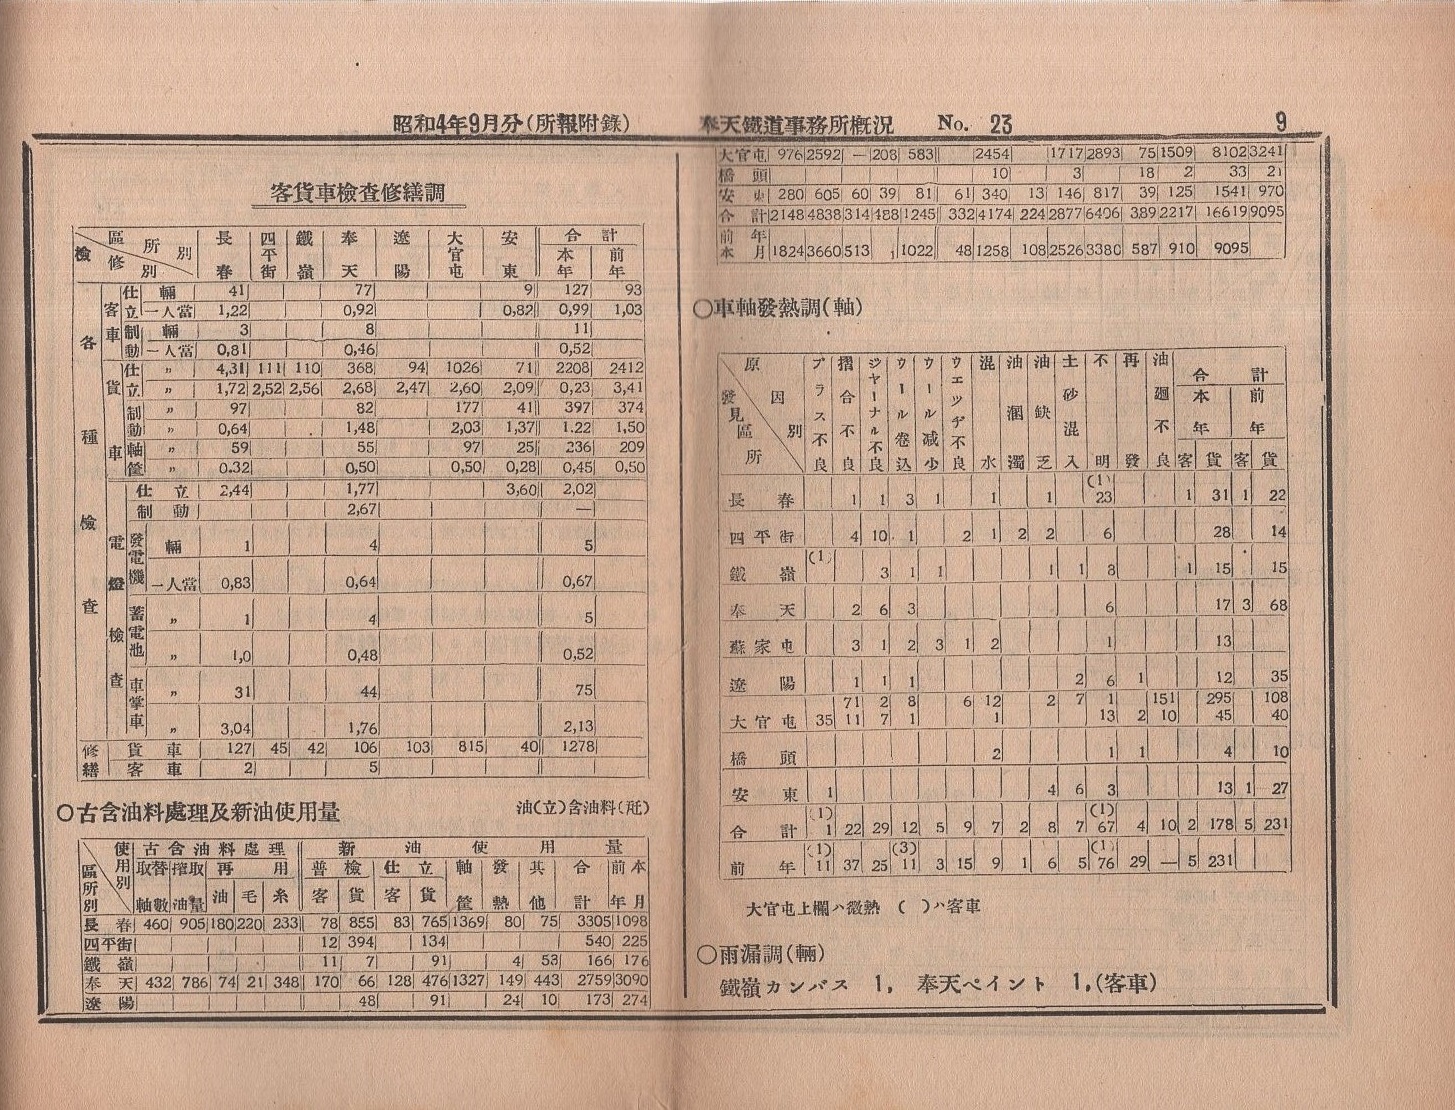 昭和4年9月分(所報附錄) 奉天鐵道事務所概況 No. 23 9
客貨車檢查修繕調
檢修別 區所別 長春 四平街 鐵嶺 奉天 遼陽 大官屯 安東 合計 本年 前年
各種檢查
客車 仕立 輛 41 77 9 127 93
一人當 1,22 0,92 0,82 0,99 1,03
制動 輛 3 8 11
一人當 0,81 0,46 0,52
貨車 仕立 〃 4,31 111 110 368 94 1026 71 2208 2412
〃 1,72 2,52 2,56 2,68 2,47 2,60 2,09 0,23 3,41
制動 〃 97 82 177 41 397 374
〃 0,64 1,48 2,03 1,37 1.22 1,50
軸筐 〃 59 55 97 25 236 209
〃 0.32 0,50 0,50 0,28 0,45 0,50
電燈檢查 仕立 2,44 1,77 3,60 2,02
制動 2,67 —
發電機 輛 1 4 5
一人當 0,83 0,64 0,67
蓄電池 〃 1 4 5
〃 1,0 0,48 0,52
車掌車 〃 31 44 75
〃 3,04 1,76 2,13
修繕 貨車 127 45 42 106 103 815 40 1278
客車 2 5
○古含油料處理及新油使用量 油(立)含油料(瓩)
使用別 區所別 古含油料處理 新油使用量
取替軸數 搾取油量 再用 油 毛 糸 普檢 客 貨 仕立 客 貨 軸筐 發熱 其他 合計 前年 本月
長春 460 905 180 220 233 78 855 83 765 1369 80 75 3305 1098
四平街 12 394 134 540 225
鐵嶺 11 7 91 4 53 166 176
奉天 432 786 74 21 348 170 66 128 476 1327 149 443 2759 3090
遼陽 48 91 24 10 173 274
大官屯 976 2592 — 208 583 2454 1717 2893 75 1509 8102 3241
橋頭 10 3 18 2 33 21
安東 280 605 60 39 81 61 340 13 146 817 39 125 1541 970
合計 2148 4838 314 488 1245 332 4174 224 2877 6406 389 2217 16619 9095
前年本月 1824 3660 513 1 1022 48 1258 108 2526 3380 587 910 9095
○車軸發熱調(軸)
原因別 發見區所 プラス不良 摺合不良 ジヤーナル不良 ウール卷込 ウール減少 ウエツヂ不良 混水 油溷濁 油缺乏 土砂混入 不明 再發 油廻不良 合計 本年 客 貨 前年 客 貨
長春 1 1 3 1 1 1 (1) 23 1 31 1 22
四平街 4 10 1 2 1 2 2 6 28 14
鐵嶺 (1) 3 1 1 1 1 8 1 15 15
奉天 2 6 3 6 17 3 68
蘇家屯 3 1 2 3 1 2 1 13
遼陽 1 1 1 2 6 1 12 35
71 2 8 6 12 2 7 1 151 295 108
大官屯 35 11 7 1 1 13 2 10 45 40
橋頭 2 1 1 4 10
安東 1 4 6 3 13 1 27
合計 (1) 1 22 29 12 5 9 7 2 8 7 (1) 67 4 10 2 178 5 231
前年 (1) 11 37 25 (3) 11 3 15 9 1 6 5 (1) 76 29 — 5 231
大官屯上欄ハ微熱 ( )ハ客車
○雨漏調(輛)
鐵嶺カンバス 1, 奉天ペイント 1,(客車)